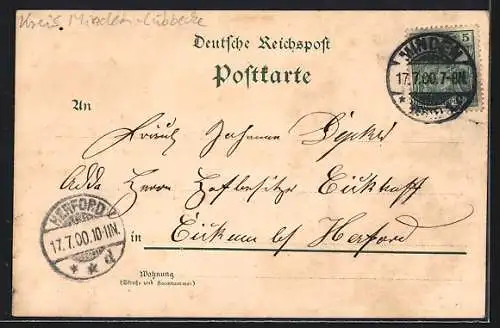 Kreis Minden-Lübbecke
Deutsche Reichspost
Postkarte
5
MINDEN
17.7.00.7-8N.
An
Fräul. Johanne
Adr. Herrn Hofbesitzer Eickhoff
in Eickum b/ Herford
HERFORD
17.7.00.10-11N.
d
Wohnung
(Straße und Hausnummer)